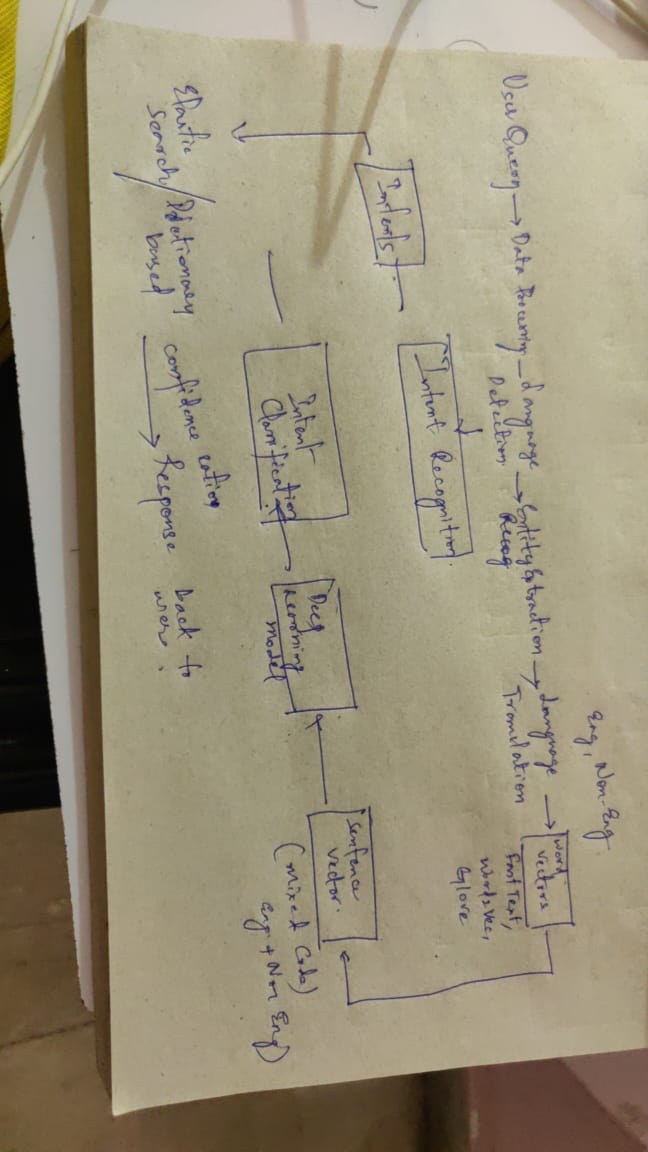 Eng, Non-Eng
User Query → Data Processing – Language Detection → Entity Extraction Recog → Language Translation → word vectors
FastText,
word2vec,
Glove
Intent Recognition
Intents
Sentence vector.
(Mixed Code)
Eng + Non Eng)
Deep Learning Model
Intent Classification
Elastic search / Dictionary based
confidence rating
→ Response back to user.